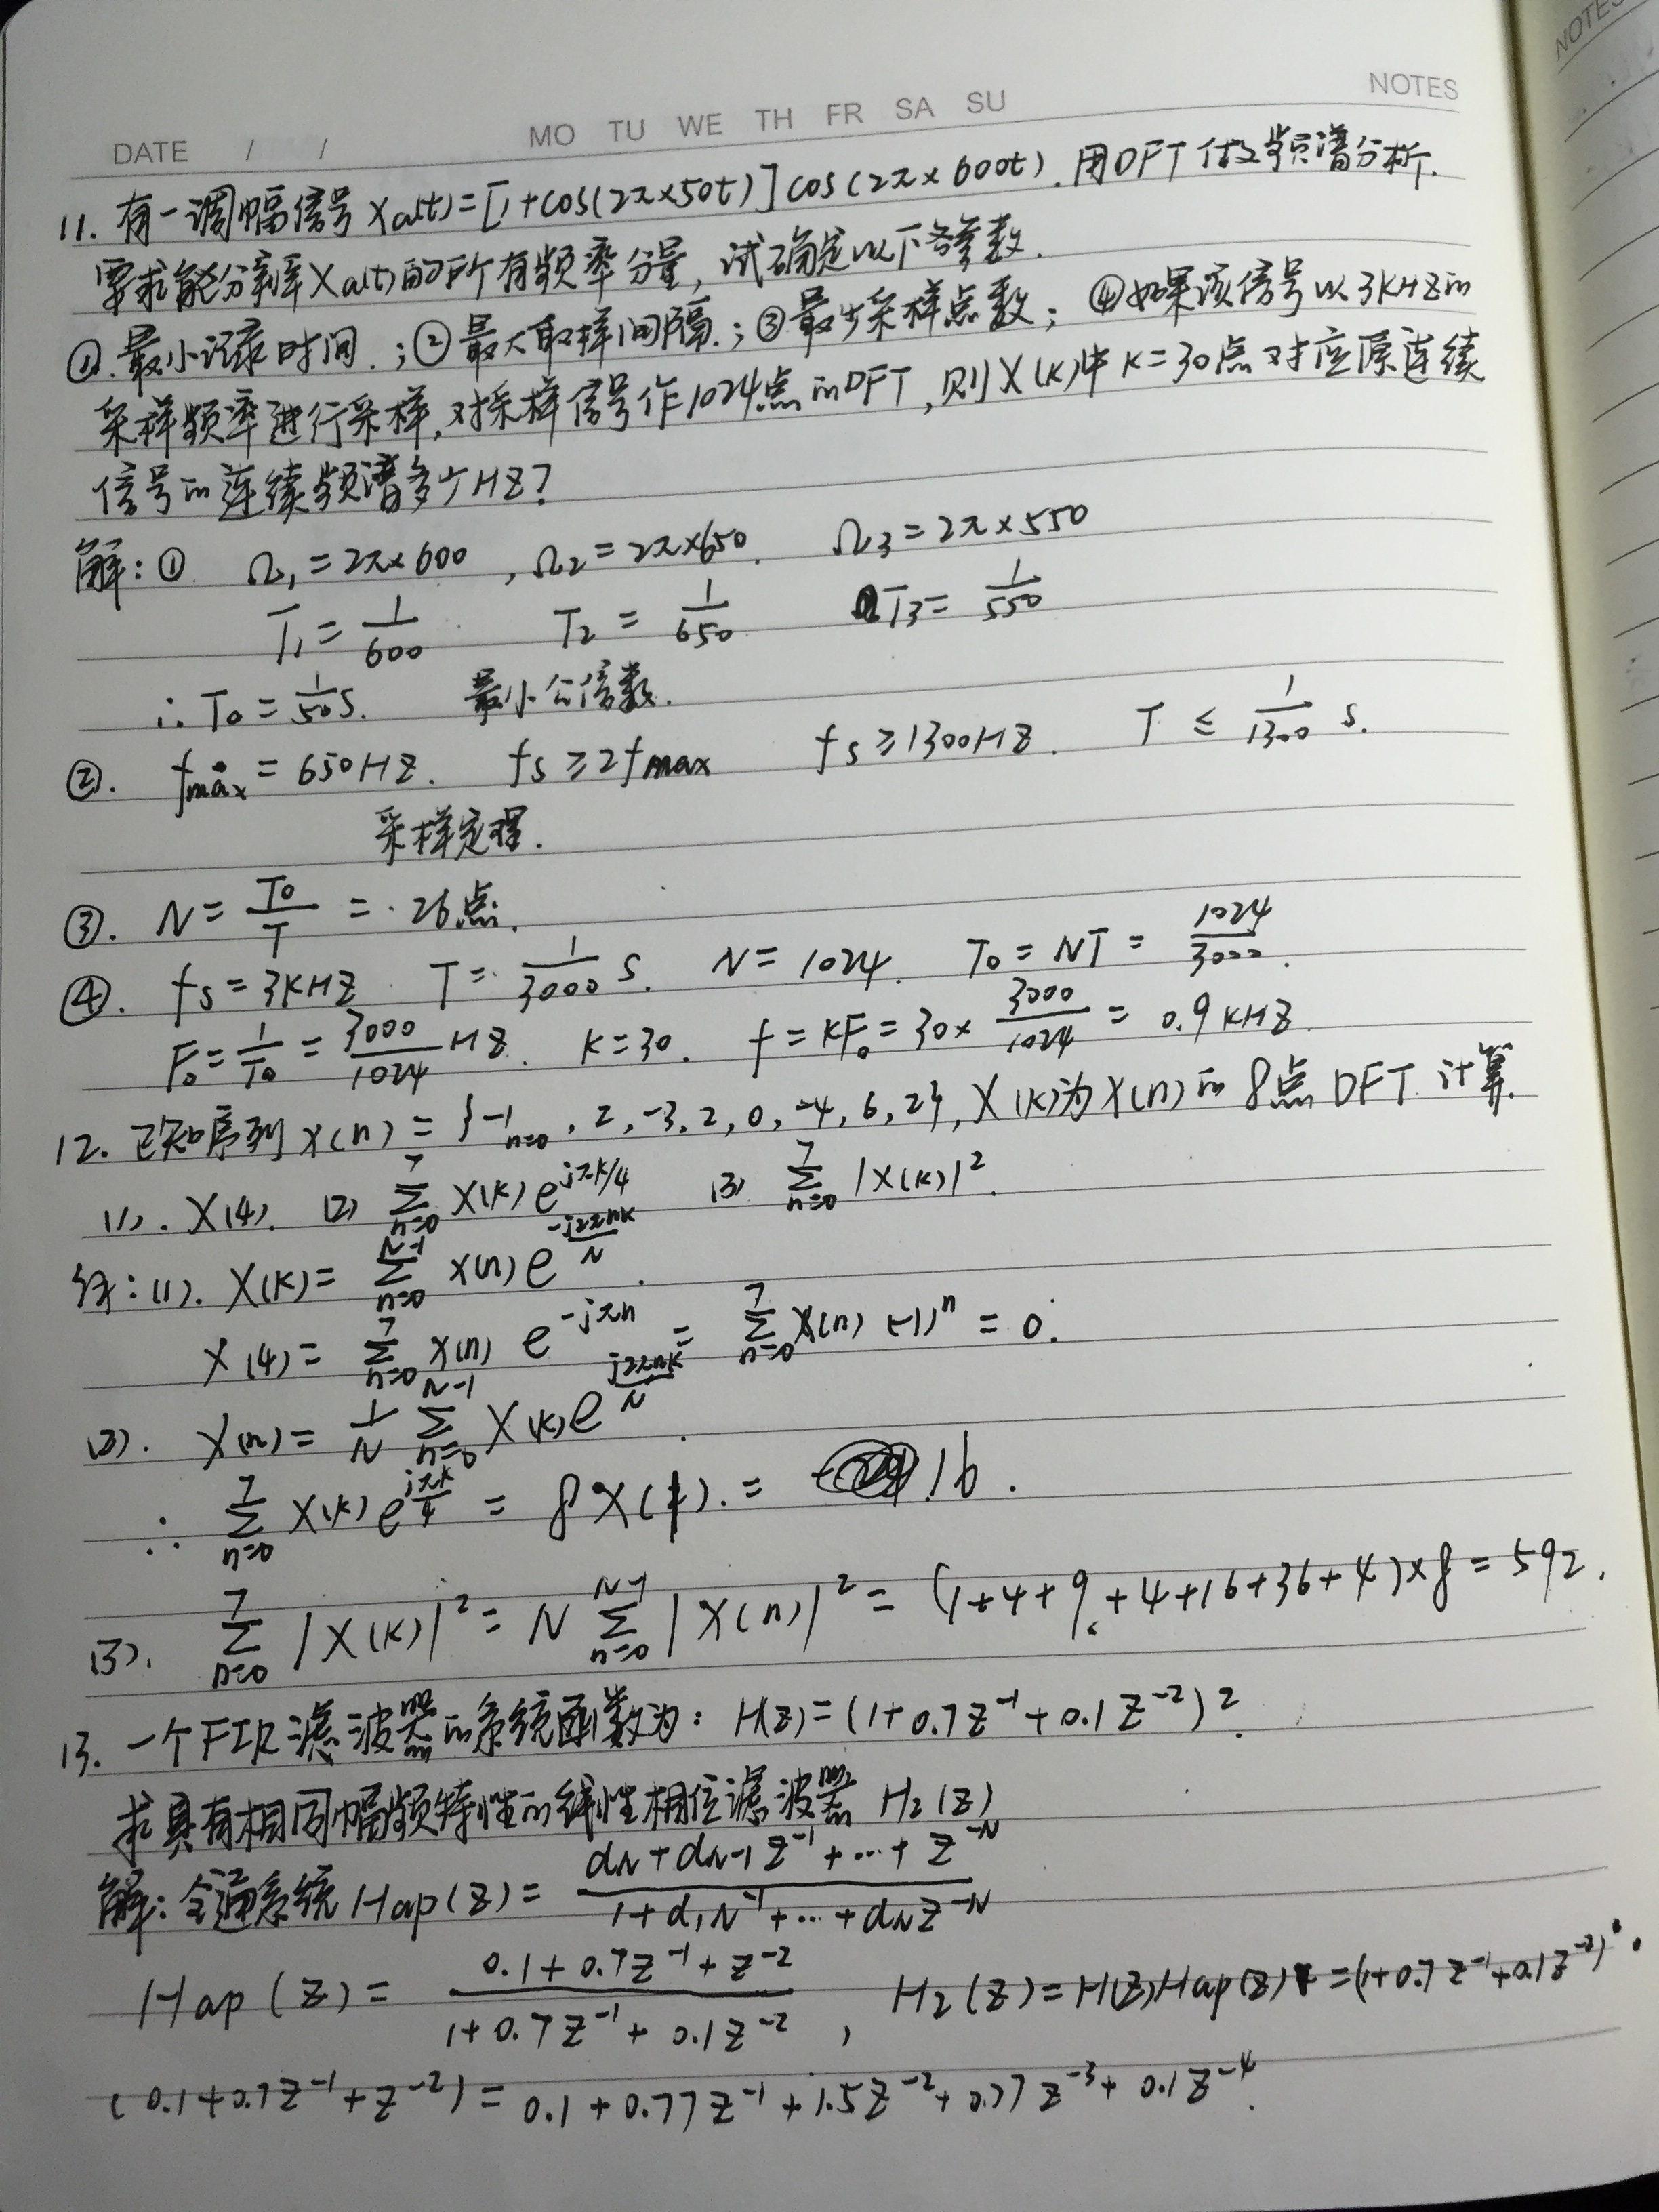 NOTES
DATE / / MO TU WE TH FR SA SU NOTES
11. 有一调幅信号 Xa(t)=[1+cos(2π×50t)]cos(2π×600t). 用DFT做频谱分析.
要求能分辨率Xa(t)的所有频率分量, 试确定以下各参数.
①. 最小记录时间.;②最大取样间隔.;③最少采样点数; ④如果该信号以3KHZ的
采样频率进行采样,对采样信号作1024点的DFT,则X(K)中K=30点对应原连续
信号的连续频谱多少HZ?
解:① Ω₁=2π×600 , Ω₂=2π×650. Ω₃=2π×550
T₁=1/600 T₂=1/650 T₃=1/550
∴T₀=1/50 s. 最小公倍数.
②. fmax=650HZ. fs≥2fmax fs≥1300HZ. T≤1/1300 s.
采样定理.
③. N=T₀/T=26点.
④. fs=3KHZ T=1/3000 s. N=1024. T₀=NT=1024/3000.
F₀=1/T₀=3000/1024 HZ. K=30. f=KF₀=30×3000/1024=0.9KHZ.
12. 已知序列x(n)={-1 n=0, 2, -3, 2, 0, -4, 6, 2}, X(K)为X(n)的8点DFT. 计算.
(1). X(4). (2) Σ(n=0→7) X(K)e^(jπK/4) (3) Σ(n=0→7) |X(K)|².
解:(1). X(K)=Σ(n=0→N-1) x(n)e^(-j2πnK/N).
X(4)=Σ(n=0→7) x(n)e^(-jπn)=Σ(n=0→7) X(n)(-1)^n=0.
(2). X(n)=1/N Σ(n=0→N-1) X(K)e^(j2πnK/N).
∴ Σ(n=0→7) X(K)e^(jπK/4)=8X(1).=16.
(3). Σ(n=0→7) |X(K)|²=N Σ(n=0→N-1) |X(n)|²=(1+4+9+4+16+36+4)×8=592.
13. 一个FIR滤波器的系统函数为: H(Z)=(1+0.7Z⁻¹+0.1Z⁻²)².
求具有相同幅频特性的线性相位滤波器 H₂(Z)
解:全通系统 Hap(Z)=(dN+dN-1Z⁻¹+…+Z⁻ᴺ)/(1+d₁N⁻¹+…+dNZ⁻ᴺ)
Hap(Z)=(0.1+0.7Z⁻¹+Z⁻²)/(1+0.7Z⁻¹+0.1Z⁻²), H₂(Z)=H(Z)Hap(Z)=(1+0.7Z⁻¹+0.1Z⁻²)·
(0.1+0.7Z⁻¹+Z⁻²)=0.1+0.77Z⁻¹+1.5Z⁻²+0.77Z⁻³+0.1Z⁻⁴.